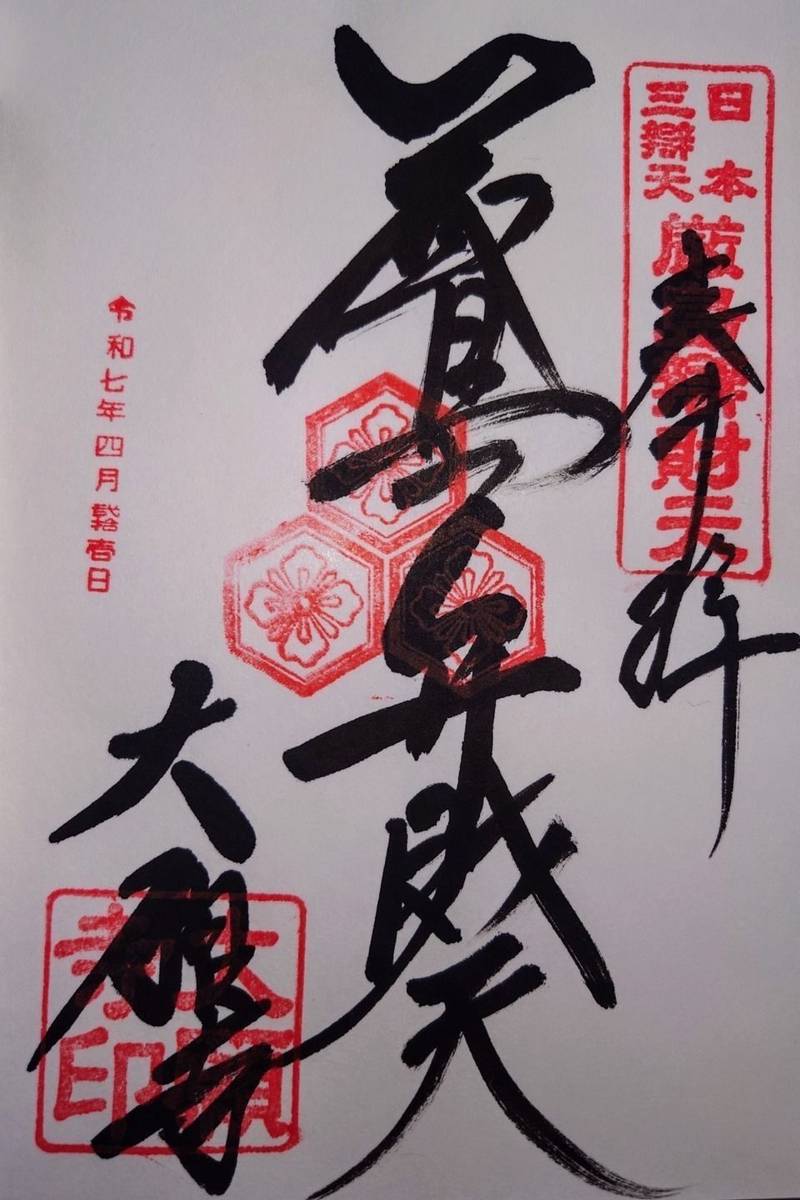 日本
三辨天
厳島辨財天
奉拝
厳島弁財天
令和七年四月
日
大願寺
大願
寺印